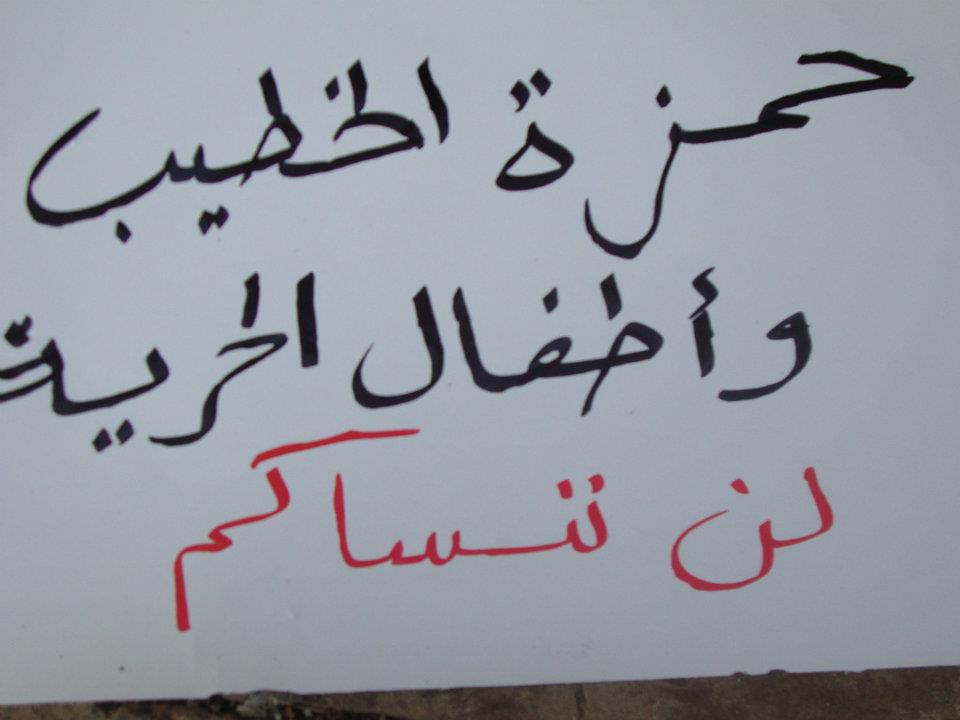 حمزة الخطيب
وأطفال الحرية
لن ننساكم